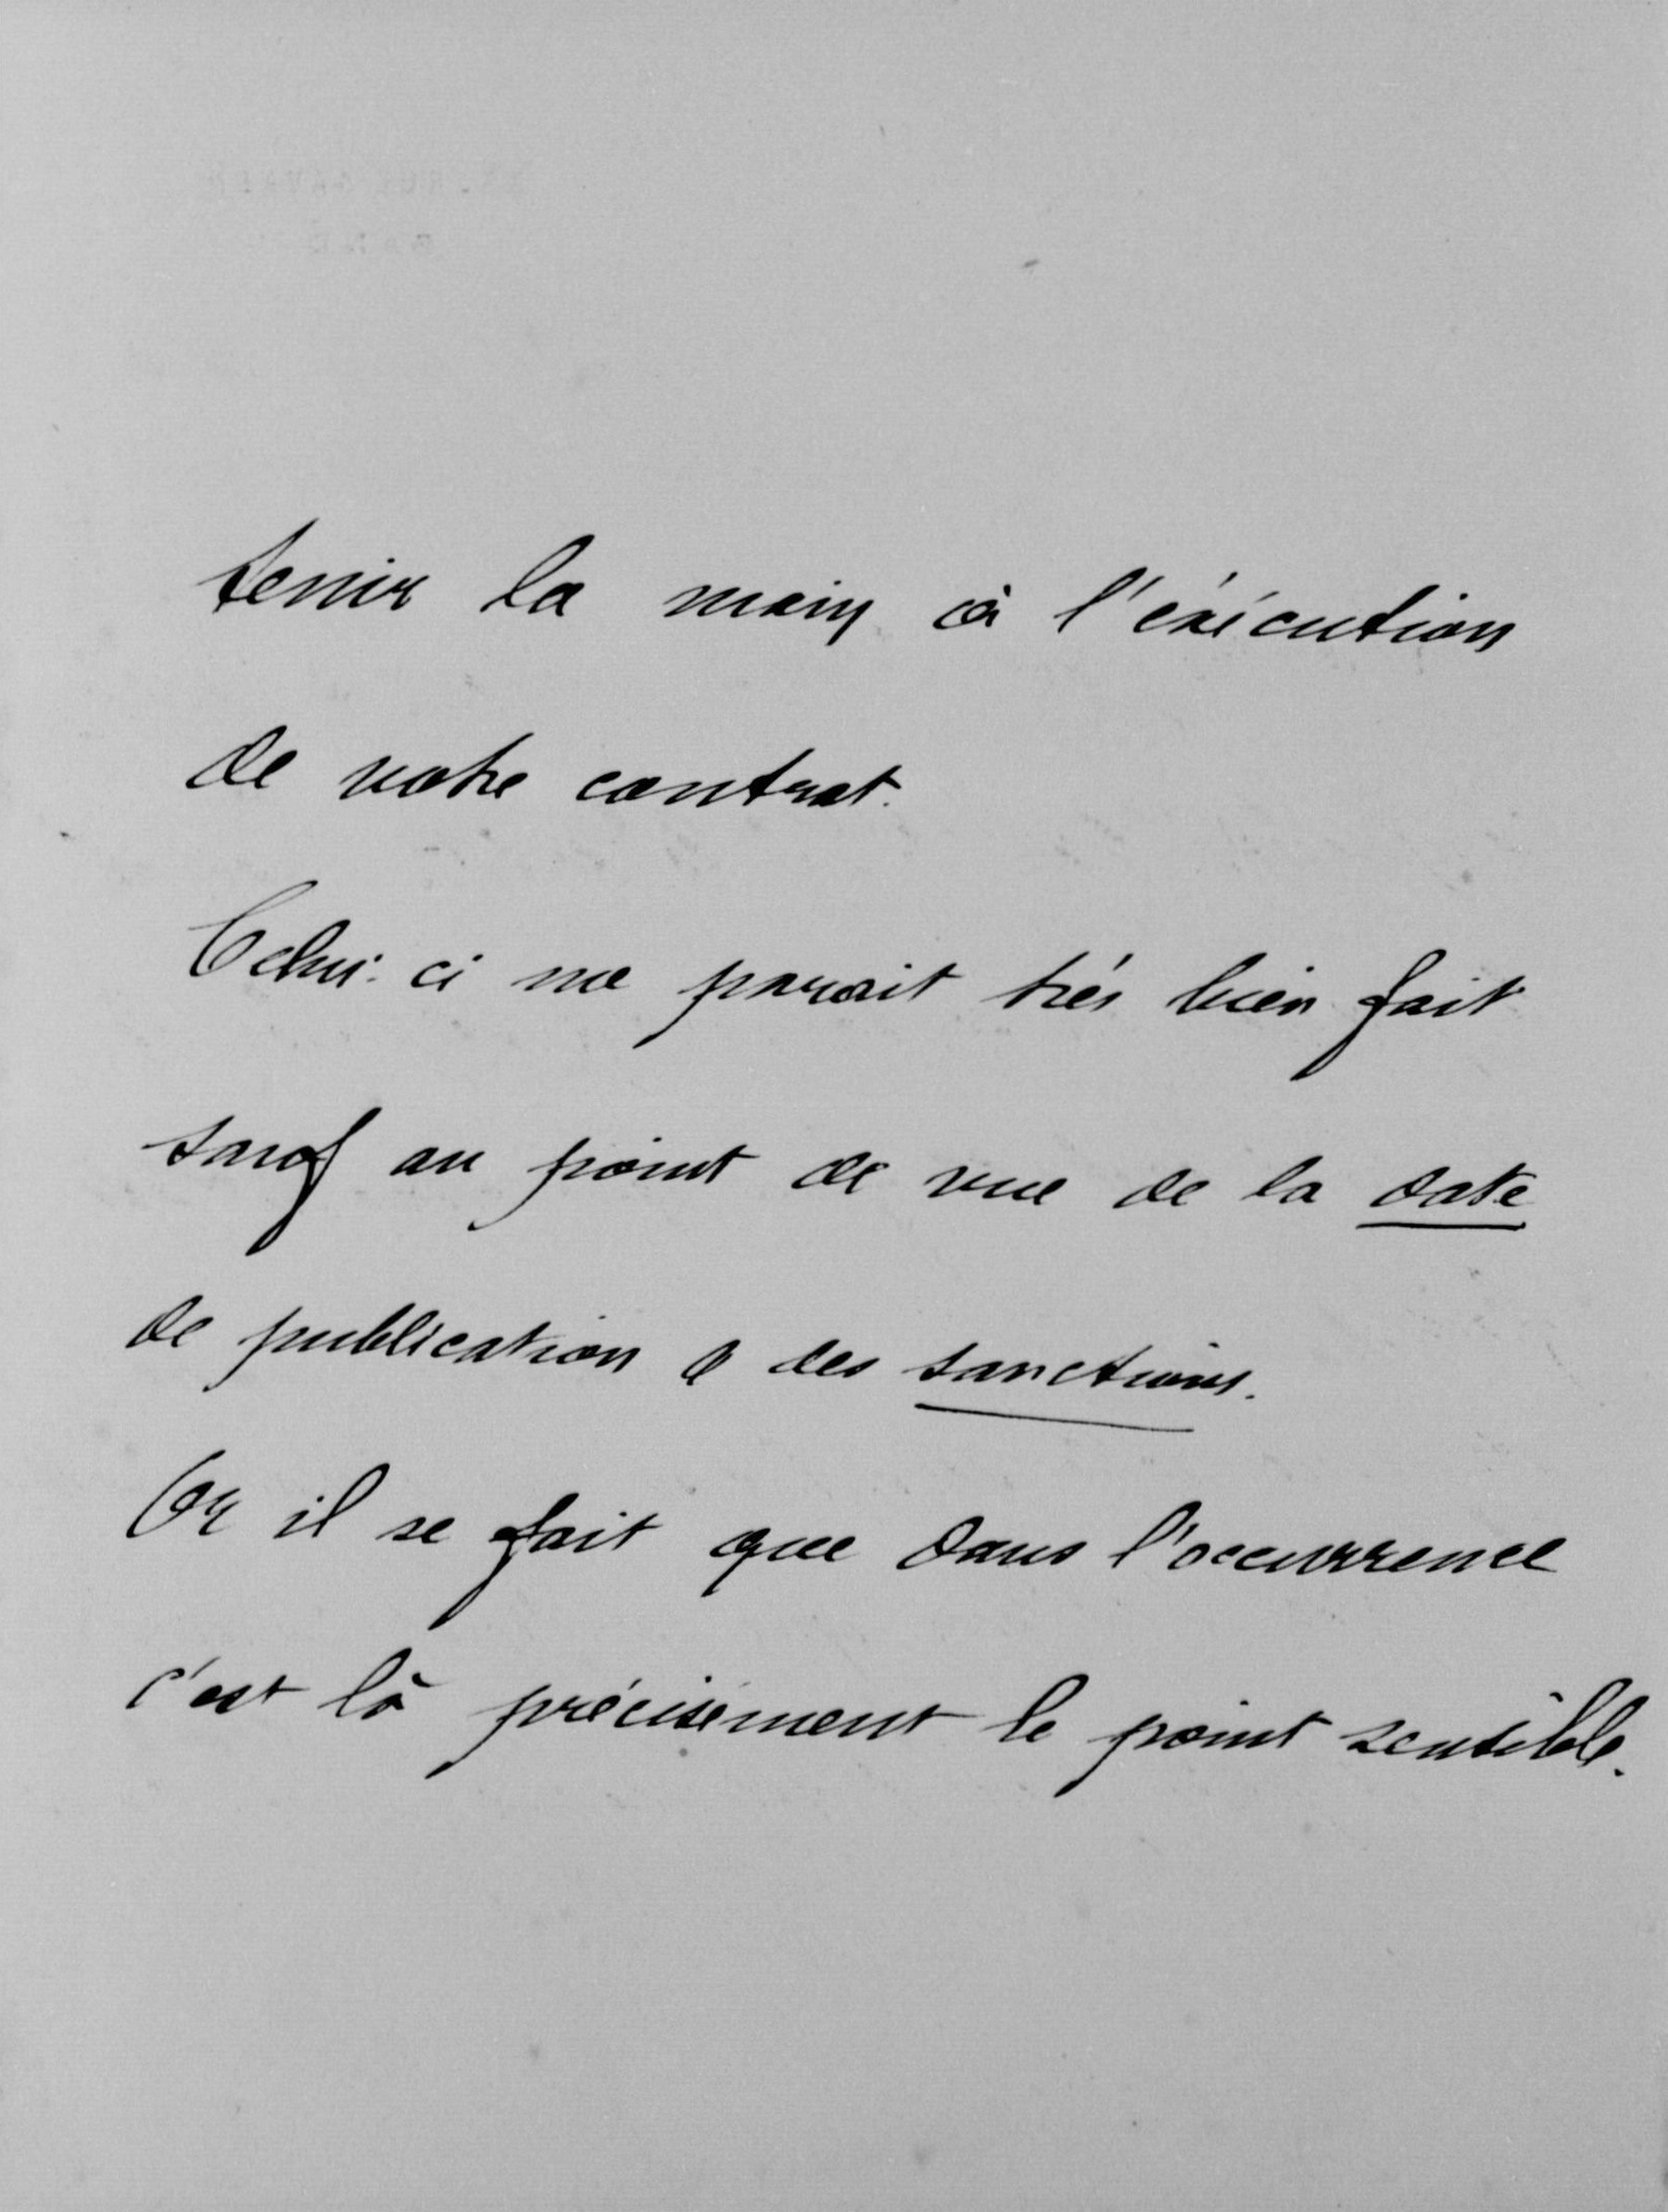 tenir la main à l'exécution
de votre contrat.
Celui-ci me parait très bien fait
sauf au point de vue de la date
de publication & des sanctions.
Or il se fait que dans l'occurrence
c'est là précisément le point sensible.